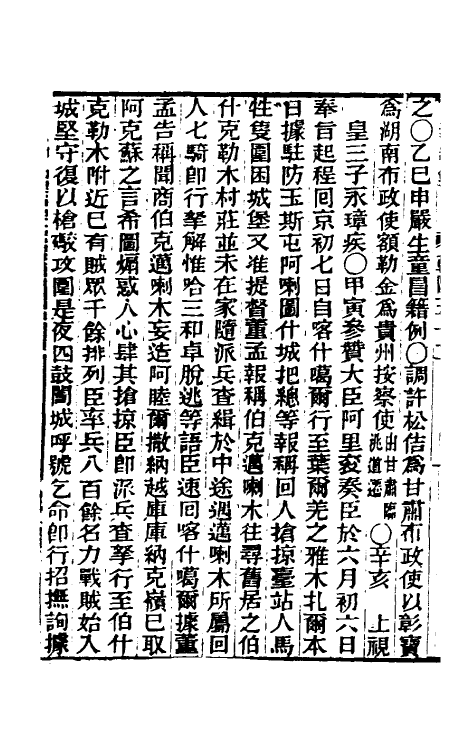 之○乙巳申嚴生童冒籍例○調許松佶爲甘肅布政使以彰寶
爲湖南布政使額勒金爲貴州按察使由甘肅臨洮道遷○辛亥 上視
皇三子永璋疾○甲寅參贊大臣阿里衮奏臣於六月初六日
奉旨起程回京初七日自喀什噶爾行至葉爾羌之雅木扎爾本
日據駐防玉斯屯阿喇圖什城把總等報稱回人搶掠臺站人馬
牲隻圍困城堡又准提督董孟報稱伯克邁喇木往尋舊居之伯
什克勒木村莊並未在家隨派兵查緝於中途遇邁喇木所屬回
人七騎卽行拏解惟哈三和卓脫逃等語臣速回喀什噶爾據董
孟告稱聞商伯克邁喇木妄造阿睦爾撒納越庫庫納克嶺已取
阿克蘇之言希圖煽惑人心肆其搶掠臣卽派兵查拏行至伯什
克勒木附近已有賊眾千餘排列臣率兵八百餘名力戰賊始入
城堅守復以槍礮攻圍是夜四鼓闔城呼號乞命卽行招撫詢據